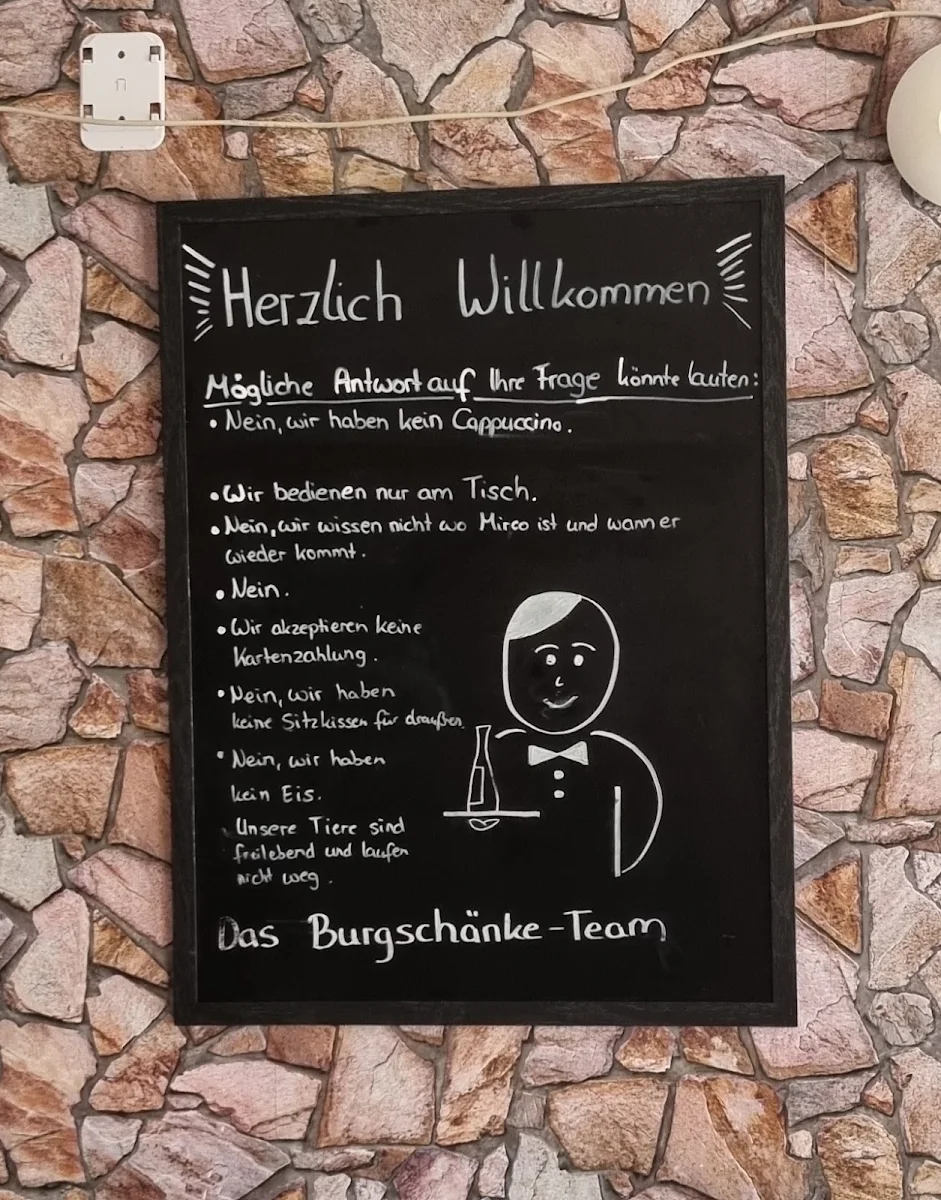 Herzlich Willkommen
Mögliche Antwort auf Ihre Frage könnte lauten:
• Nein, wir haben kein Cappuccino.
• Wir bedienen nur am Tisch.
• Nein, wir wissen nicht wo Mirco ist und wann er
wieder kommt.
• Nein.
• Wir akzeptieren keine
Kartenzahlung.
• Nein, wir haben
keine Sitzkissen für draußen.
• Nein, wir haben
kein Eis.
Unsere Tiere sind
freilebend und laufen
nicht weg.
Das Burgschänke-Team